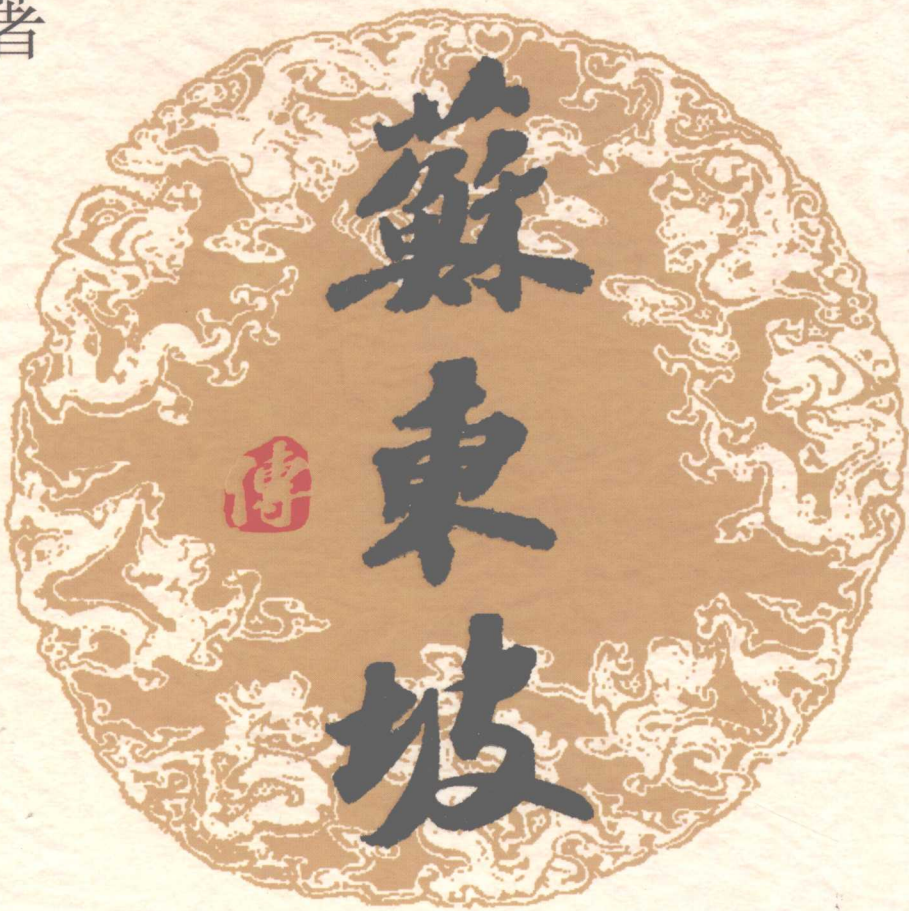 著
蘇東坡
傳